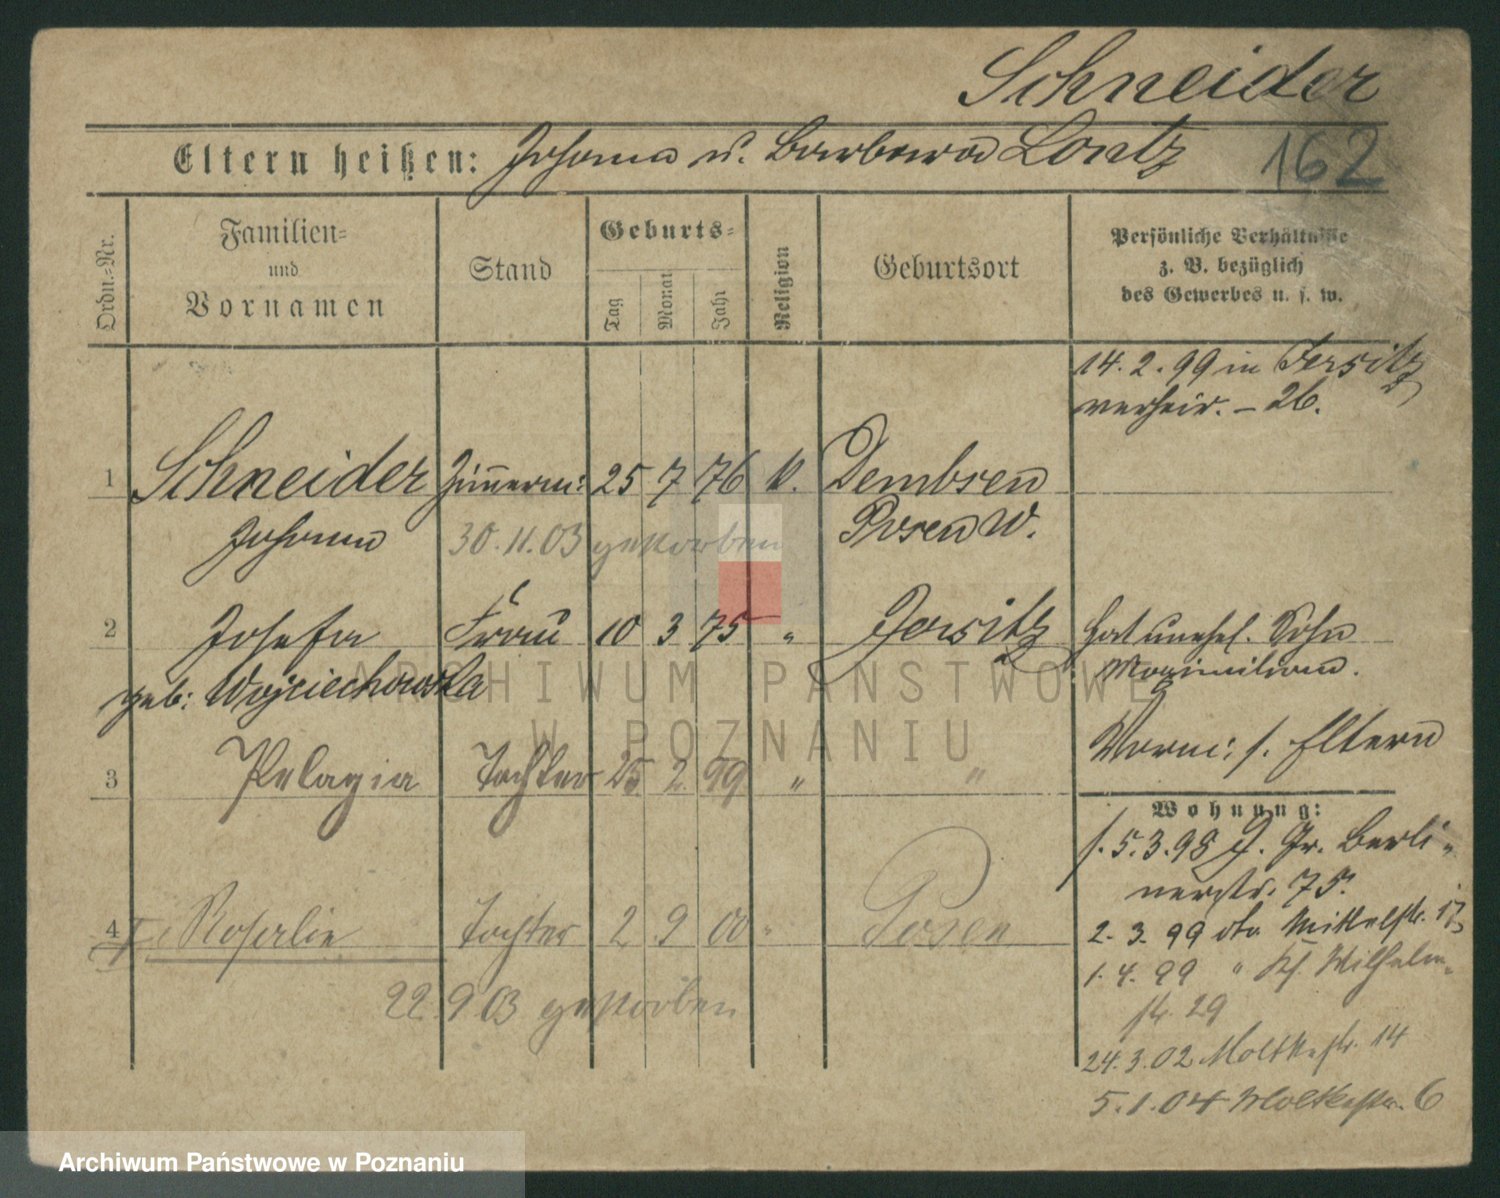 Schneider
Eltern heißen: Johann u. Barbara Lontz 162
Ordn.-Nr.
Familien-
und
Vornamen
Stand
Geburts-
Tag
Monat
Jahr
Religion
Geburtsort
Persönliche Verhältnisse
z. B. bezüglich
des Gewerbes u. s. w.
14. 2. 99 in Jersitz
verheir. – 26.
1 Schneider Zimmerm: 25 7 76 k. Dembsen
Johann 30.11.03 gestorben Posen W.
2 Josefa Frau 10 3 75 " Jersitz Hat unehel. Sohn
geb: Wojciechowska Maximilian.
Vorm: s. Eltern
3 Pelagia Tochter 25 2 99 " "
Wohnung:
s. 5. 3. 98 J. Gr. Berli-
nerstr. 75.
4 Rosalie Tochter 2 9 00 " Posen
2. 3. 99 dto Mittelstr. 17
1. 4. 99 " Kl. Wilhelm-
22. 9 03 gestorben
str. 29
24. 3. 02 Moltkestr. 14
5. 1. 04 Moltkestr. 6
ARCHIWUM PAŃSTWOWE
W POZNANIU
Archiwum Państwowe w Poznaniu